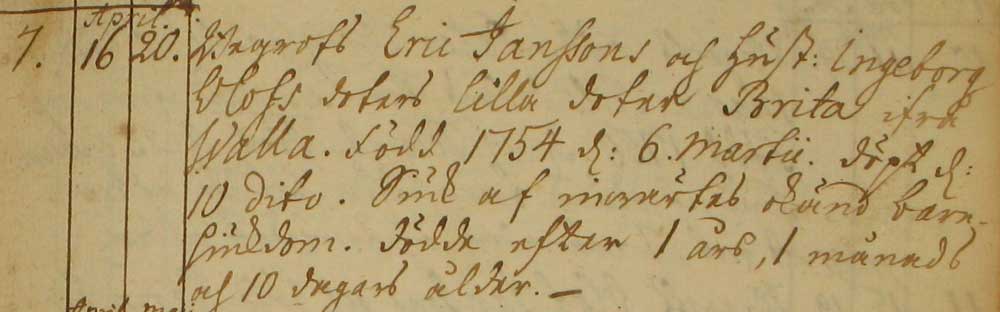 April.
7. 16 20. Begrofs Eric Janssons och Hust: Ingeborg
Olofs doters lilla doter Brita ifrå
Walla. Född 1754 d: 6. Martii. döpt d:
10 Dito. Siuk af invärtes okänd barn-
siukdom. dödde efter 1 års, 1 månads
och 10 dagars ålder. —
April